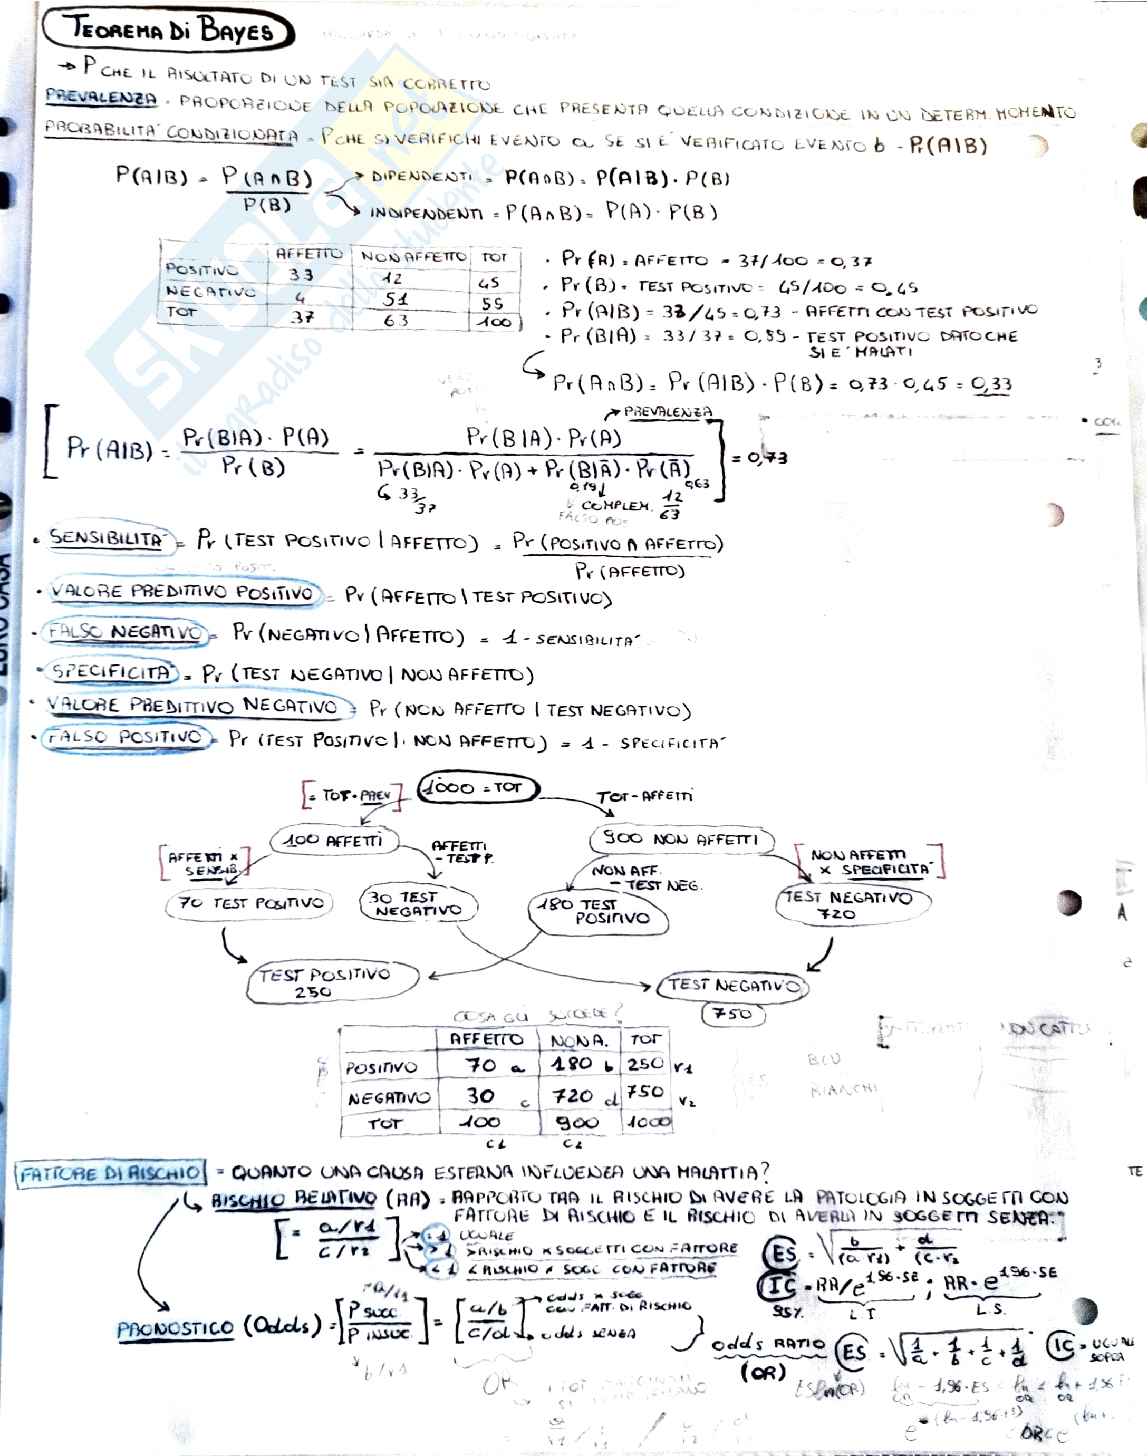 TEOREMA DI BAYES
→ P CHE IL RISULTATO DI UN TEST SIA CORRETTO
PREVALENZA - PROPORZIONE DELLA POPOLAZIONE CHE PRESENTA QUELLA CONDIZIONE IN UN DETERM. MOMENTO
PROBABILITA' CONDIZIONATA = P CHE SI VERIFICHI EVENTO a SE SI E' VERIFICATO EVENTO b - Pr(A|B)
P(A|B) = P(A∩B) / P(B)
→ DIPENDENTI = P(A∩B) = P(A|B) · P(B)
→ INDIPENDENTI = P(A∩B) = P(A) · P(B)
AFFETTO NON AFFETTO TOT
POSITIVO 33 12 45
NEGATIVO 4 51 55
TOT 37 63 100
· Pr(A) = AFFETTO = 37/100 = 0,37
· Pr(B) = TEST POSITIVO = 45/100 = 0,45
· Pr(A|B) = 33/45 = 0,73 - AFFETTI CON TEST POSITIVO
· Pr(B|A) = 33/37 = 0,89 - TEST POSITIVO DATO CHE
SI E' MALATI
Pr(A∩B) = Pr(A|B) · P(B) = 0,73 · 0,45 = 0,33
→ PREVALENZA
[Pr(A|B) = Pr(B|A) · P(A) / Pr(B) = Pr(B|A) · Pr(A) / Pr(B|A) · Pr(A) + Pr(B|Ā) · Pr(Ā)] = 0,73
33/37 0,19 COMPLEM. 12/63 0,63
FALSO POS
· SENSIBILITA' = Pr (TEST POSITIVO | AFFETTO) = Pr (POSITIVO ∩ AFFETTO) / Pr (AFFETTO)
· VALORE PREDITTIVO POSITIVO = Pr (AFFETTO | TEST POSITIVO)
· FALSO NEGATIVO = Pr (NEGATIVO | AFFETTO) = 1 - SENSIBILITA'
· SPECIFICITA' = Pr (TEST NEGATIVO | NON AFFETTO)
· VALORE PREDITTIVO NEGATIVO = Pr (NON AFFETTO | TEST NEGATIVO)
· FALSO POSITIVO = Pr (TEST POSITIVO | NON AFFETTO) = 1 - SPECIFICITA'
[= TOT·PREV] 1000 = TOT TOT-AFFETTI
100 AFFETTI 900 NON AFFETTI
[AFFETTI × SENSIB.] AFFETTI - TEST P. NON AFF. - TEST NEG. [NON AFFETTI × SPECIFICITA']
70 TEST POSITIVO 30 TEST NEGATIVO 180 TEST POSITIVO TEST NEGATIVO 720
TEST POSITIVO 250 TEST NEGATIVO 750
COSA GLI SUCCEDE?
AFFETTO NON A. TOT
POSITIVO 70 a 180 b 250 r1
NEGATIVO 30 c 720 d 750 r2
TOT 100 900 1000
c1 c2
FATTORE DI RISCHIO = QUANTO UNA CAUSA ESTERNA INFLUENZA UNA MALATTIA?
RISCHIO RELATIVO (RR) = RAPPORTO TRA IL RISCHIO DI AVERE LA PATOLOGIA IN SOGGETTI CON
FATTORE DI RISCHIO E IL RISCHIO DI AVERLA IN SOGGETTI SENZA.
[= a/r1 / c/r2] = 1 UGUALE
> 1 > RISCHIO × SOGGETTI CON FATTORE
< 1 < RISCHIO × SOGG CON FATTORE
ES = √ b/(a·r1) + d/(c·r2
IC 95% = RR/e^1,96·SE ; RR·e^1,96·SE
L.I. L.S.
PRONOSTICO (Odds) = [P SUCC / P INSUC] = [a/b / c/d]
= a/r1
b/r1
odds × SOGG CON FATT. DI RISCHIO
odds SENZA
odds RATIO (OR)
ES = √ 1/a + 1/b + 1/c + 1/d
IC = UGUALE SOPRA
SKUOLA.net
il paradiso dello studente